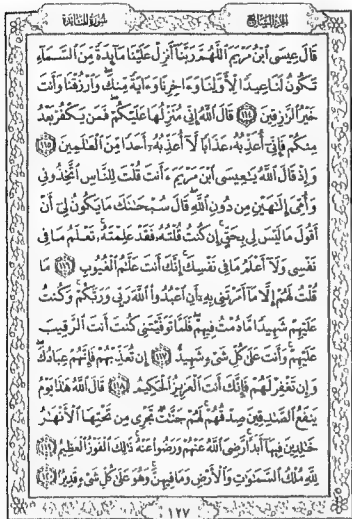 الجزء السابع
سورة المائدة
قَالَ عِيسَى ٱبْنُ مَرْيَمَ ٱللَّهُمَّ رَبَّنَآ أَنزِلْ عَلَيْنَا مَآئِدَةً مِّنَ ٱلسَّمَآءِ
تَكُونُ لَنَا عِيدًا لِّأَوَّلِنَا وَءَاخِرِنَا وَءَايَةً مِّنكَ وَٱرْزُقْنَا وَأَنتَ
خَيْرُ ٱلرَّٰزِقِينَ ١١٤ قَالَ ٱللَّهُ إِنِّى مُنَزِّلُهَا عَلَيْكُمْ فَمَن يَكْفُرْ بَعْدُ
مِنكُمْ فَإِنِّىٓ أُعَذِّبُهُۥ عَذَابًا لَّآ أُعَذِّبُهُۥٓ أَحَدًا مِّنَ ٱلْعَٰلَمِينَ ١١٥
وَإِذْ قَالَ ٱللَّهُ يَٰعِيسَى ٱبْنَ مَرْيَمَ ءَأَنتَ قُلْتَ لِلنَّاسِ ٱتَّخِذُونِى
وَأُمِّىَ إِلَٰهَيْنِ مِن دُونِ ٱللَّهِ قَالَ سُبْحَٰنَكَ مَا يَكُونُ لِىٓ أَنْ
أَقُولَ مَا لَيْسَ لِى بِحَقٍّ إِن كُنتُ قُلْتُهُۥ فَقَدْ عَلِمْتَهُۥ تَعْلَمُ مَا فِى
نَفْسِى وَلَآ أَعْلَمُ مَا فِى نَفْسِكَ إِنَّكَ أَنتَ عَلَّٰمُ ٱلْغُيُوبِ ١١٦ مَا
قُلْتُ لَهُمْ إِلَّا مَآ أَمَرْتَنِى بِهِۦٓ أَنِ ٱعْبُدُوا۟ ٱللَّهَ رَبِّى وَرَبَّكُمْ وَكُنتُ
عَلَيْهِمْ شَهِيدًا مَّا دُمْتُ فِيهِمْ فَلَمَّا تَوَفَّيْتَنِى كُنتَ أَنتَ ٱلرَّقِيبَ
عَلَيْهِمْ وَأَنتَ عَلَىٰ كُلِّ شَىْءٍ شَهِيدٌ ١١٧ إِن تُعَذِّبْهُمْ فَإِنَّهُمْ عِبَادُكَ
وَإِن تَغْفِرْ لَهُمْ فَإِنَّكَ أَنتَ ٱلْعَزِيزُ ٱلْحَكِيمُ ١١٨ قَالَ ٱللَّهُ هَٰذَا يَوْمُ
يَنفَعُ ٱلصَّٰدِقِينَ صِدْقُهُمْ لَهُمْ جَنَّٰتٌ تَجْرِى مِن تَحْتِهَا ٱلْأَنْهَٰرُ
خَٰلِدِينَ فِيهَآ أَبَدًا رَّضِىَ ٱللَّهُ عَنْهُمْ وَرَضُوا۟ عَنْهُ ذَٰلِكَ ٱلْفَوْزُ ٱلْعَظِيمُ ١١٩
لِلَّهِ مُلْكُ ٱلسَّمَٰوَٰتِ وَٱلْأَرْضِ وَمَا فِيهِنَّ وَهُوَ عَلَىٰ كُلِّ شَىْءٍ قَدِيرٌ ١٢٠
١٢٧